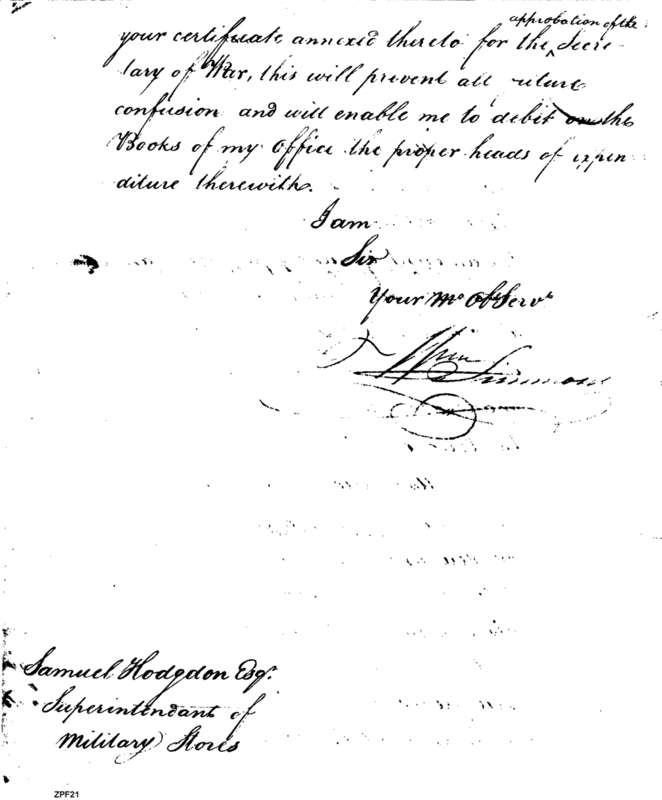 approbation of the
your certificate annexed thereto for the ^ Secre-
tary of War, this will prevent all uture
confusion and will enable me to debit on the
Books of my Office the proper heads of expen
diture therewith.
I am
Sir
Your Mo Obt Servt
Wm Simmons
Samuel Hodgdon Esqr.
Superintendant of
Military Stores
ZPF21